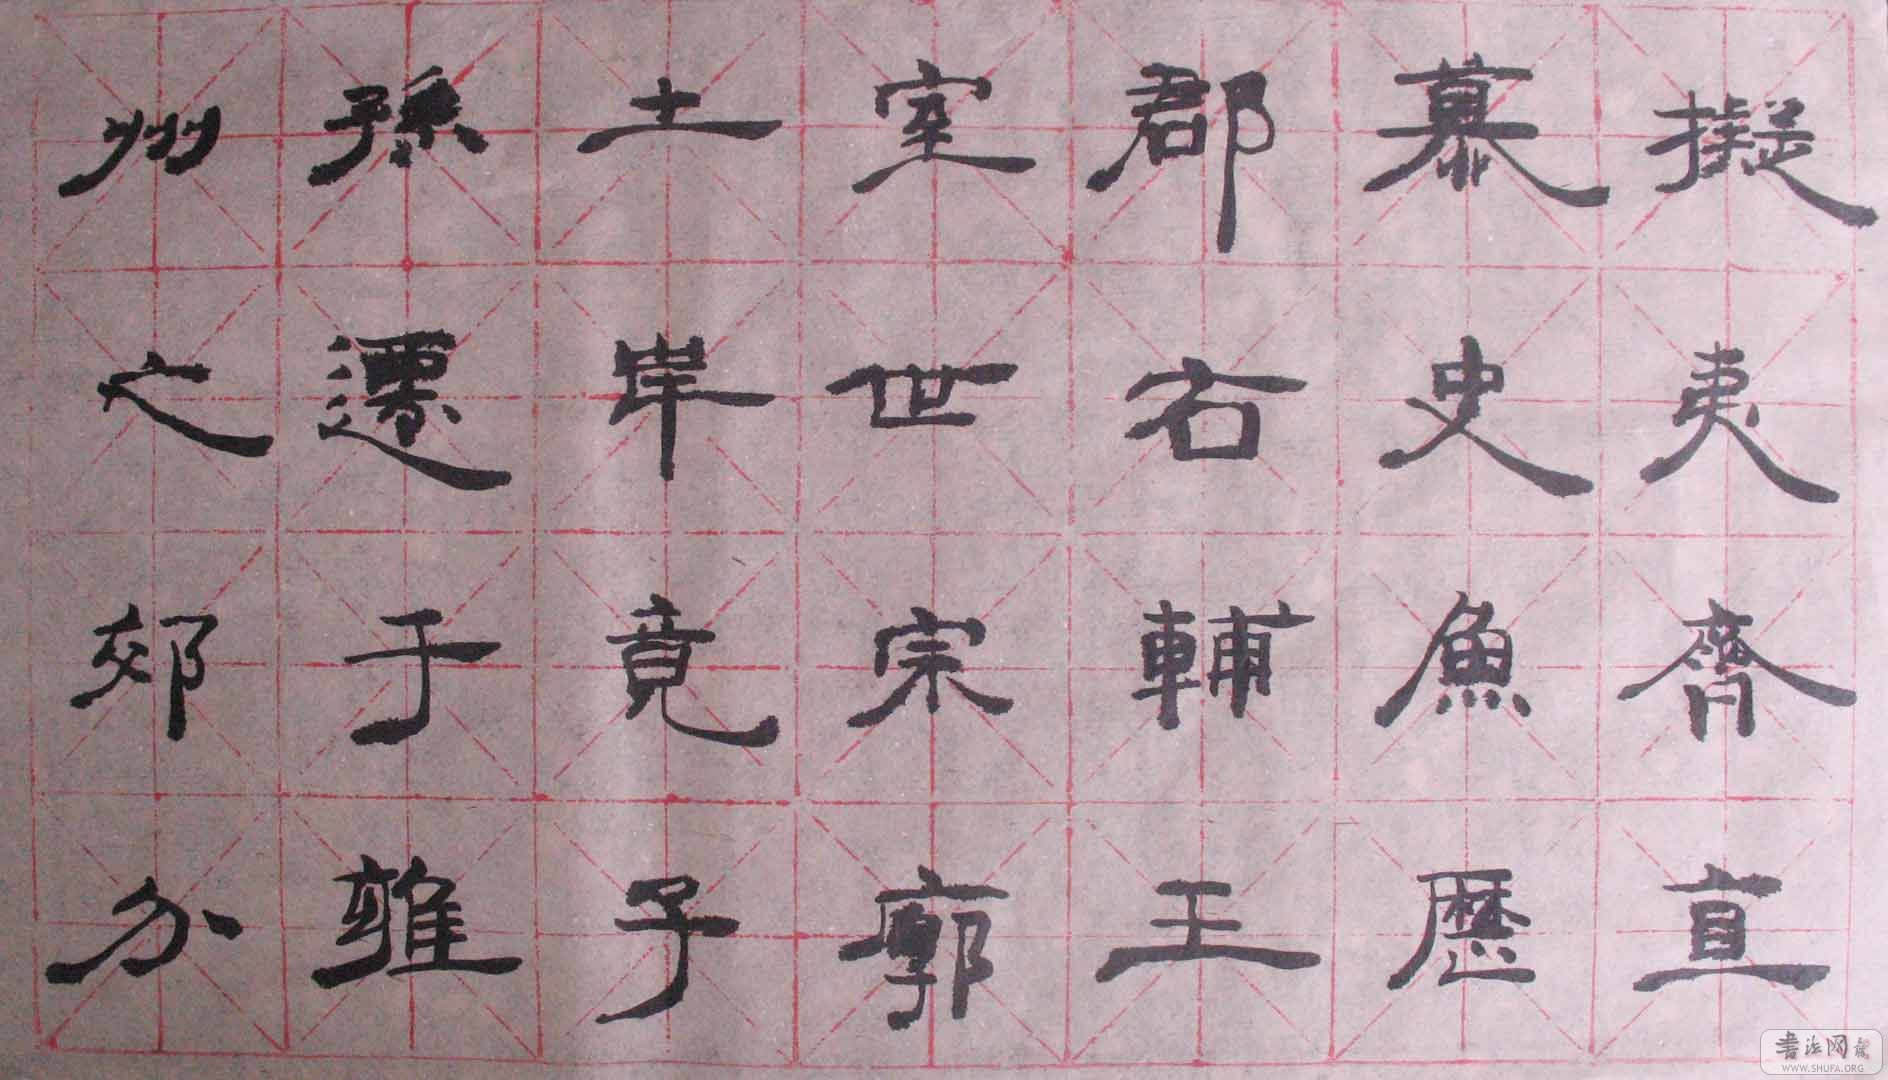 擬夷齊直
慕史魚歷
郡右輔王
室世宗廓
土岸竟子
孫遷于雍
州之郊分
書法网
WWW.SHUFA.ORG